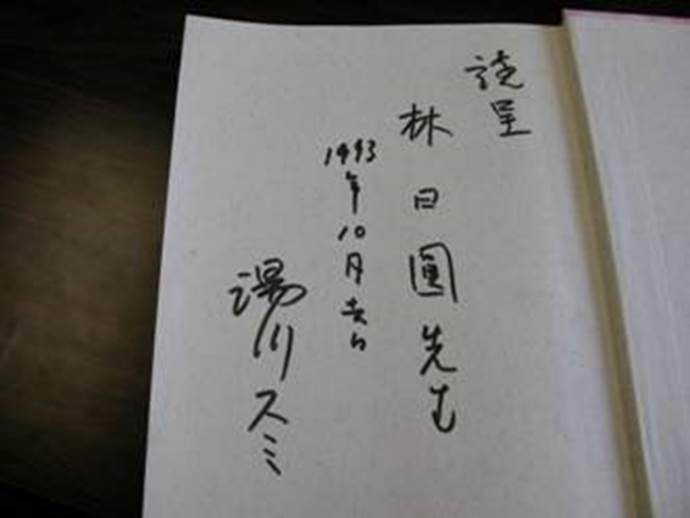 謹呈
林日圓先生
1993年10月吉日
湯川スミ